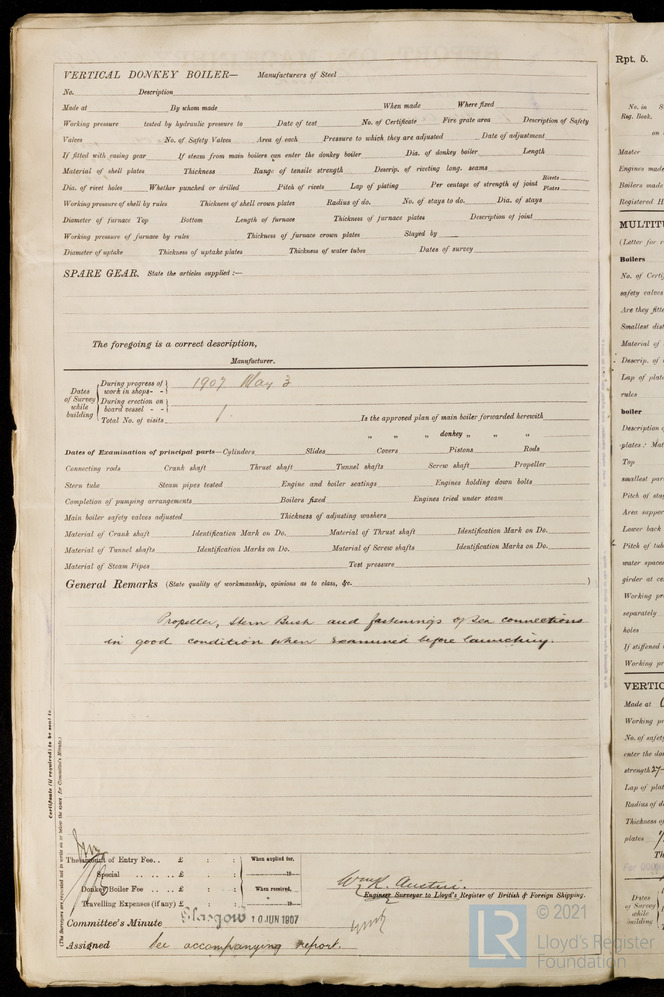 VERTICAL DONKEY BOILER— Manufacturers of Steel
No. Description
Made at By whom made When made Where fixed
Working pressure tested by hydraulic pressure to Date of test No. of Certificate Fire grate area Description of Safety
Valves No. of Safety Valves Area of each Pressure to which they are adjusted Date of adjustment
If fitted with easing gear If steam from main boilers can enter the donkey boiler Dia. of donkey boiler Length
Material of shell plates Thickness Range of tensile strength Descrip. of riveting long. seams
Dia. of rivet holes Whether punched or drilled Pitch of rivets Lap of plating Per centage of strength of joint Rivets Plates
Working pressure of shell by rules Thickness of shell crown plates Radius of do. No. of stays to do. Dia. of stays
Diameter of furnace Top Bottom Length of furnace Thickness of furnace plates Description of joint
Working pressure of furnace by rules Thickness of furnace crown plates Stayed by
Diameter of uptake Thickness of uptake plates Thickness of water tubes Dates of survey
SPARE GEAR. State the articles supplied :—
The foregoing is a correct description,
Manufacturer.
Dates of Survey while building
During progress of work in shops - - 1907 May 3
During erection on board vessel - -
Total No. of visits 1.
Is the approved plan of main boiler forwarded herewith
„ „ „ donkey „ „ „
Dates of Examination of principal parts—Cylinders Slides Covers Pistons Rods
Connecting rods Crank shaft Thrust shaft Tunnel shafts Screw shaft Propeller
Stern tube Steam pipes tested Engine and boiler seatings Engines holding down bolts
Completion of pumping arrangements Boilers fixed Engines tried under steam
Main boiler safety valves adjusted Thickness of adjusting washers
Material of Crank shaft Identification Mark on Do. Material of Thrust shaft Identification Mark on Do.
Material of Tunnel shafts Identification Marks on Do. Material of Screw shafts Identification Marks on Do.
Material of Steam Pipes Test pressure
General Remarks (State quality of workmanship, opinions as to class, &c. )
Propeller, Stern Bush and fastenings of Sea connections
in good condition when examined before launching.
Certificate (if required) to be sent to
(The Surveyors are requested not to write on or below the space for Committee's Minute.)
The amount of Entry Fee . . £ : : When applied for,
Special . . . . . £ : : 19
Donkey Boiler Fee . . . £ : : When received,
Travelling Expenses (if any) £ : : 19
Wm R. Austin.
Engineer Surveyor to Lloyd's Register of British & Foreign Shipping.
Committee's Minute Glasgow 10 JUN 1907
Assigned See accompanying report.
Rpt. 5.
No. in
Reg. Book.
on
Master
Engines made
Boilers made
Registered H
MULTITU
(Letter for r
Boilers
No. of Certif
safety valves
Are they fitte
Smallest dist
Material of
Descrip. of
Lap of plate
rules
boiler
Description
plates : Mat
Top
smallest par
Pitch of stay
Area suppor
Lower back
Pitch of tub
water spaces
girder at ce
Working pr
separately
holes
If stiffened
Working pr
VERTIC
Made at
Working pr
No. of safety
enter the do
strength 27-
Lap of plat
Radius of d
Thickness of
plates
Th
Dates
of Survey
while
building
© 2021
LR
Lloyd's Register
Foundation